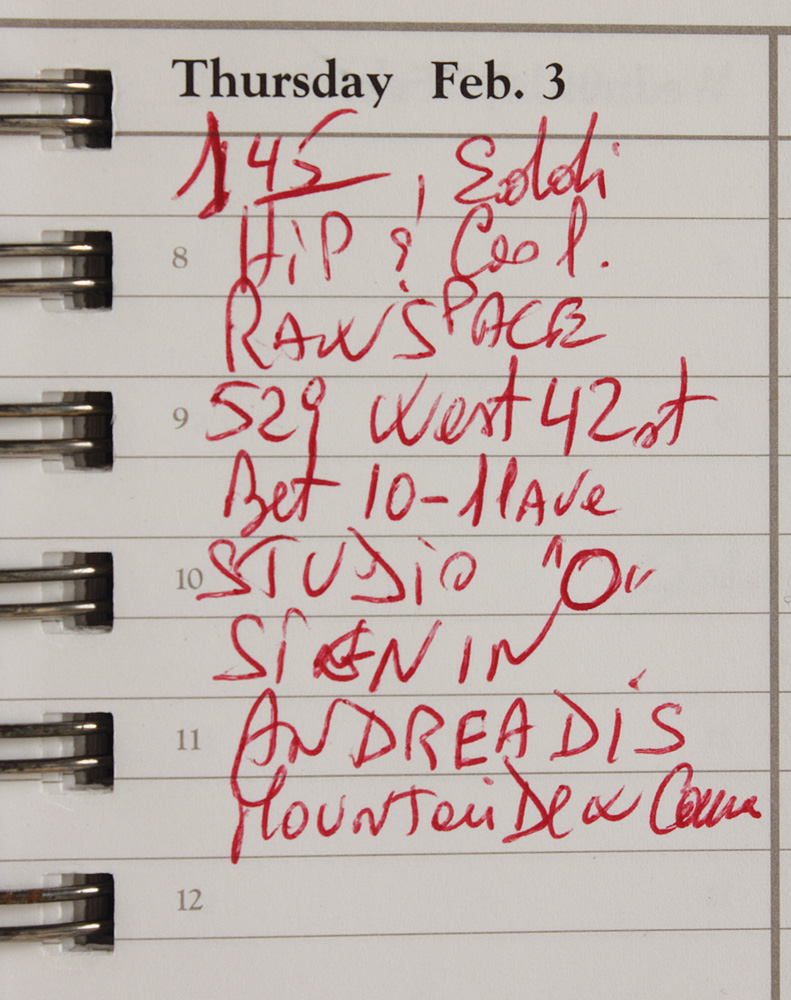 Thursday Feb. 3
145, Eddi
8 HiP & Cool.
RAW SPACE
9 529 West 42st
Bet 10-11Ave
10 STUDiO "O"
SIGN IN
11 ANDREADIS
MOUNTain Dew Comm
12